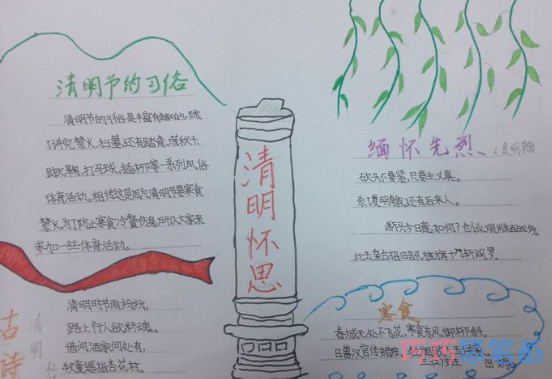 清明节的习俗
清明节的习俗是丰富有趣的,除
了讲究禁火、扫墓,还有踏青、荡秋千、
蹴鞠、打马球、插柳等一系列风俗
体育活动。相传这是因为清明节要寒食
禁火,为了防止寒食冷餐伤身,所以大家来
参加一些体育活动。
清明时节雨纷纷,
路上行人欲断魂。
借问酒家何处有,
牧童遥指杏花村。
古诗
清明
清明怀思
缅怀先烈
砍头不要紧,只要主义真。
杀了夏明翰,还有后来人。
断头今日意如何?创业艰难百战多。
此去泉台招旧部,旌旗十万斩阎罗。
寒食
春城无处不飞花,寒食东风御柳斜。
日暮汉宫传蜡烛,
巧巧简笔画